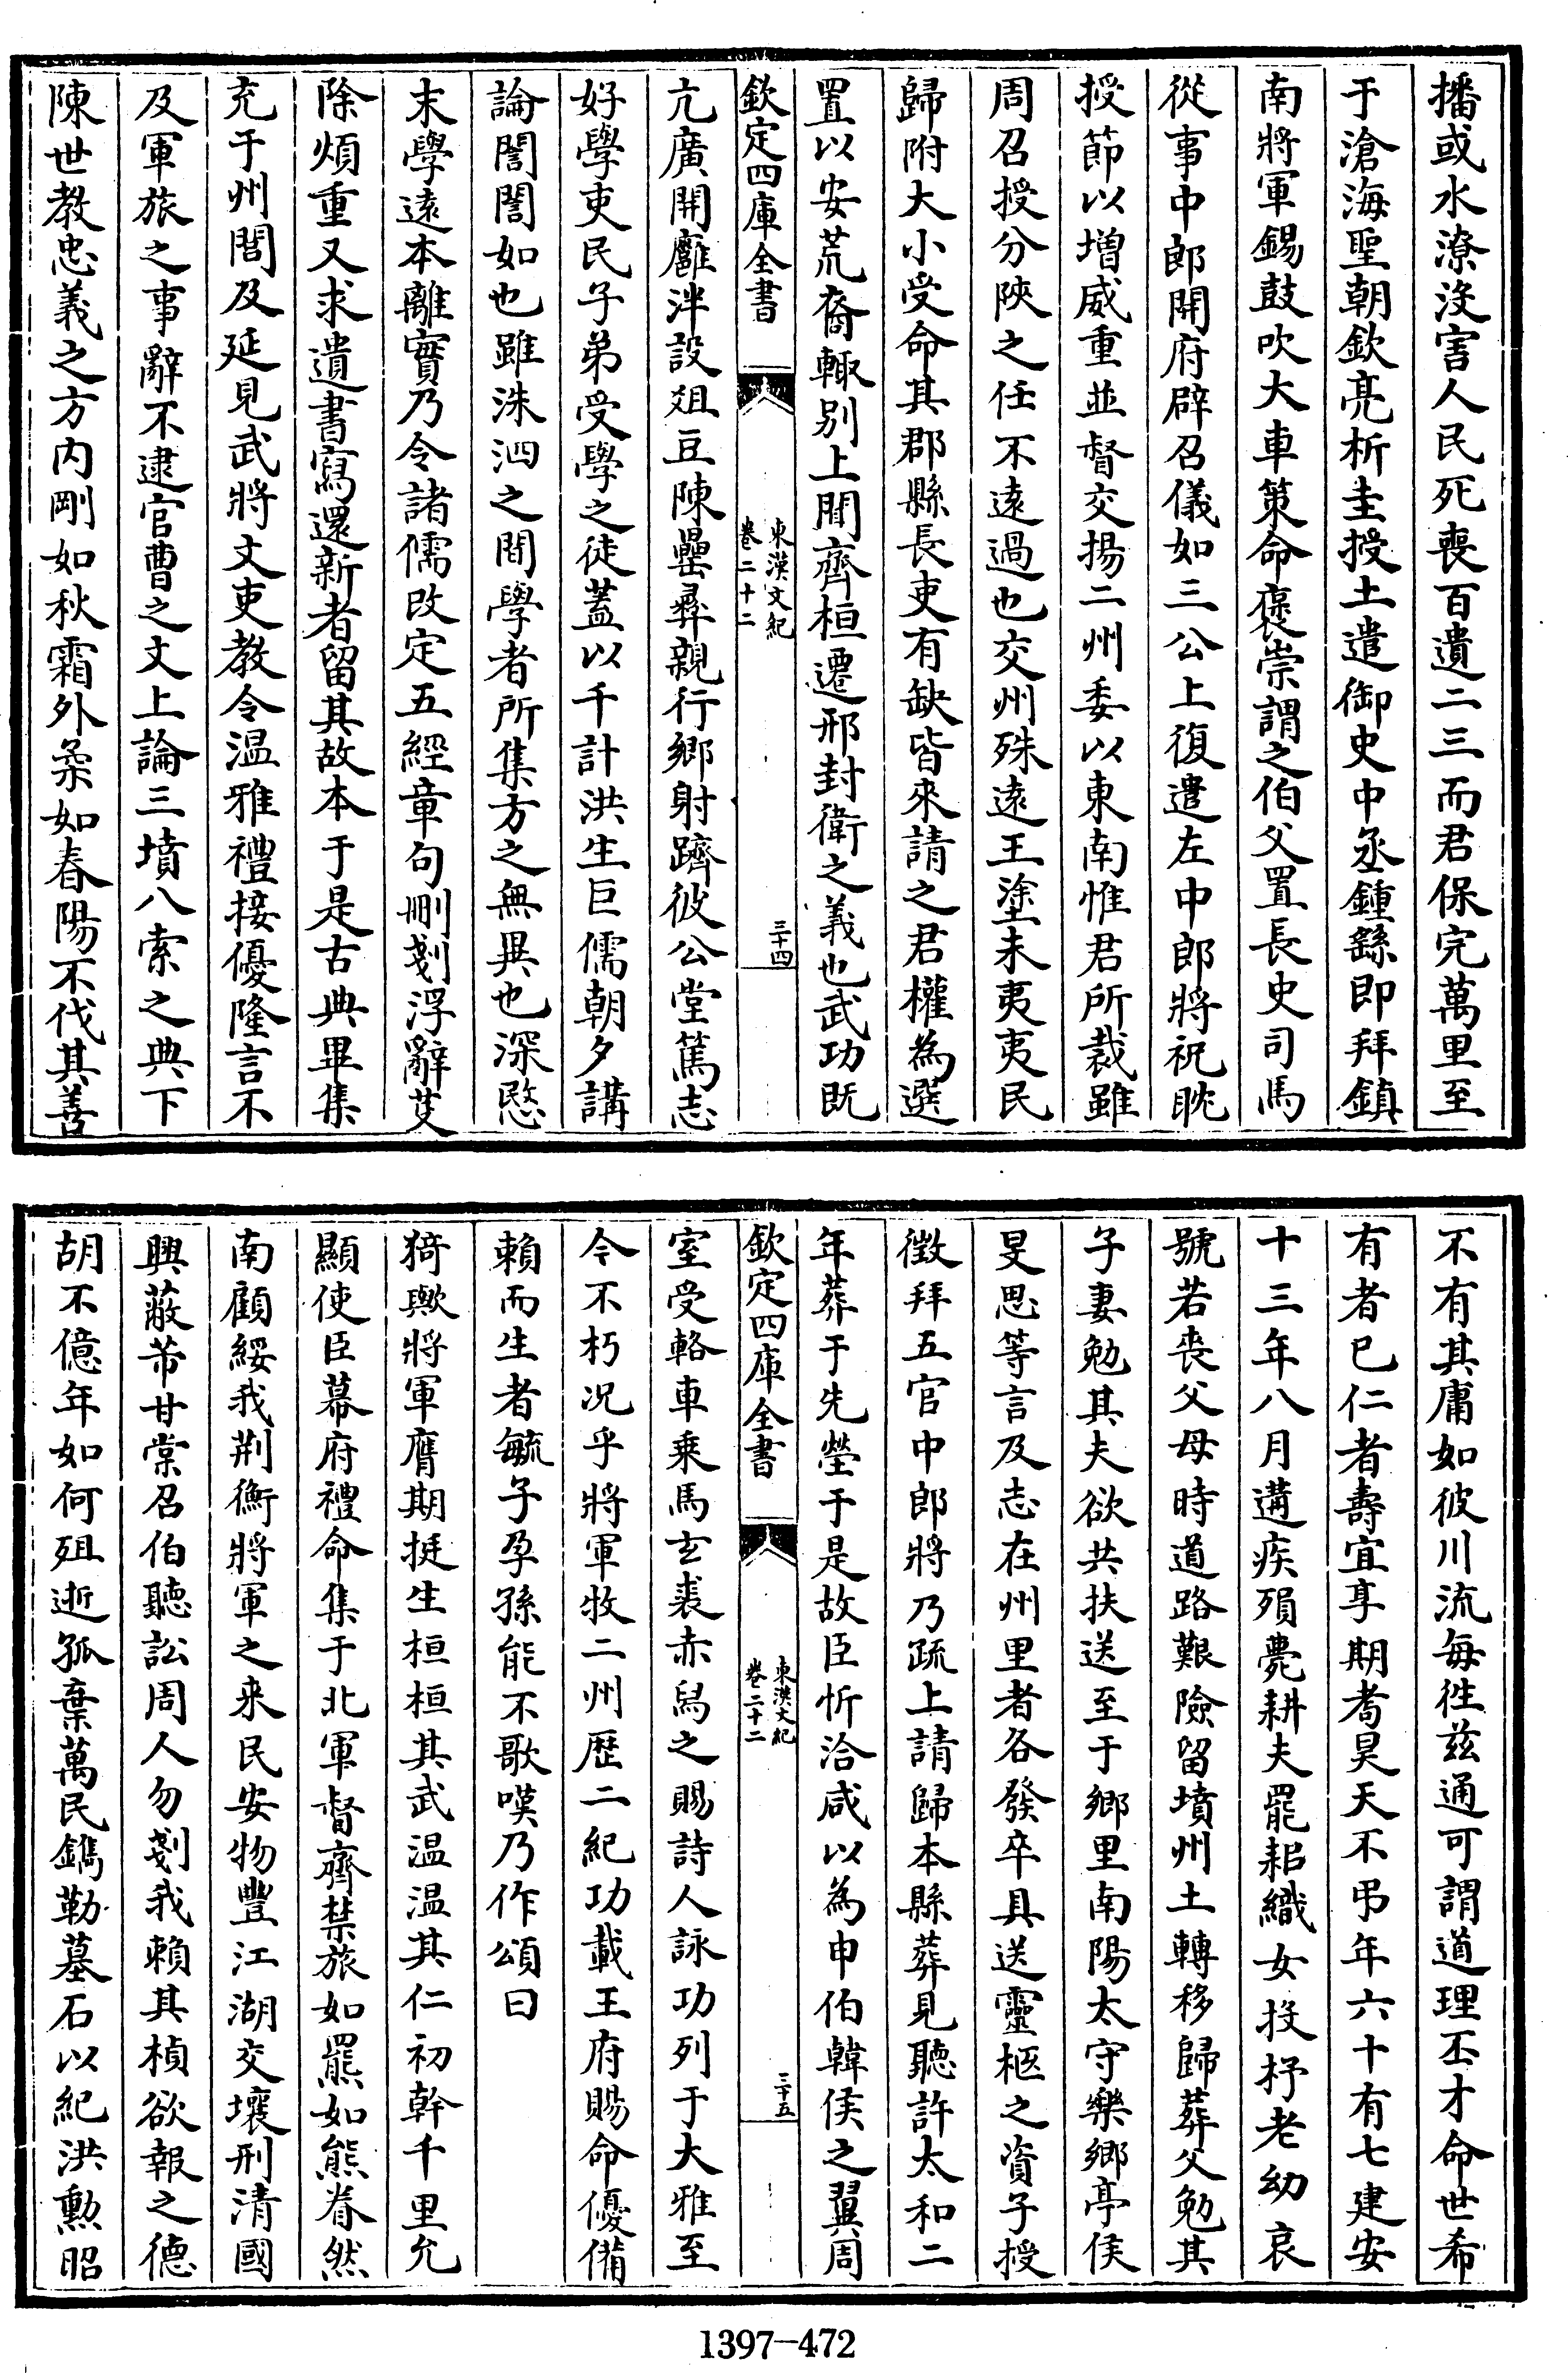 播或水潦沒害人民死喪百遺二三而君保完萬里至
于滄海聖朝欽亮析圭授土遣御史中丞鍾繇即拜鎮
南將軍錫鼓吹大車策命褒崇謂之伯父置長史司馬
從事中郎開府辟召儀如三公上復遣左中郎將祝眈
授節以增威重並督交揚二州委以東南惟君所裁雖
周召授分陜之任不遠過也交州殊遠王塗未夷夷民
歸附大小受命其郡縣長吏有缺皆來請之君權為選
置以安荒裔輙别上聞齊桓遷邢封衛之義也武功既
欽定四庫全書
東漢文紀
卷二十二
三十四
亢廣開雝泮設俎豆陳罍彞親行鄉射躋彼公堂篤志
好學吏民子弟受學之徒蓋以千計洪生巨儒朝夕講
論誾誾如也雖洙泗之間學者所集方之無異也深愍
末學遠本離實乃令諸儒改定五經章句刪剗浮辭芟
除煩重又求遺書寫還新者留其故本于是古典畢集
充于州閭及延見武將文吏教令温雅禮接優隆言不
及軍旅之事辭不逮官曹之文上論三墳八索之典下
陳世教忠義之方内剛如秋霜外柔如春陽不伐其善
不有其庸如彼川流每徃兹通可謂道理丕才命世希
有者已仁者壽宜享期耇昊天不弔年六十有七建安
十三年八月遘疾殞薨耕夫罷耜織女投杼老幼哀
號若喪父母時道路艱險留墳州土轉移歸葬父勉其
子妻勉其夫欲共扶送至于鄉里南陽太守樂鄉亭侯
旻思等言及志在州里者各發卒具送靈柩之資子授
徵拜五官中郎將乃疏上請歸本縣葬見聽許太和二
年葬于先塋于是故臣忻洽咸以為申伯韓侯之翼周
欽定四庫全書
東漢文紀
卷二十二
三十五
室受輅車乗馬玄衮赤舄之賜詩人詠功列于大雅至
今不朽况乎將軍牧二州歴二紀功載王府賜命優備
賴而生者毓子孕孫能不歌嘆乃作頌曰
猗歟將軍膺期挺生桓桓其武温温其仁初幹千里允
顯使臣幕府禮命集于北軍督齊禁旅如羆如熊眷然
南顧綏我荆衡將軍之來民安物豐江湖交壤刑清國
興蔽芾甘棠召伯聽訟周人勿剗我賴其楨欲報之德
胡不億年如何殂逝孤棄萬民鐫勒墓石以紀洪勲昭
1397—472